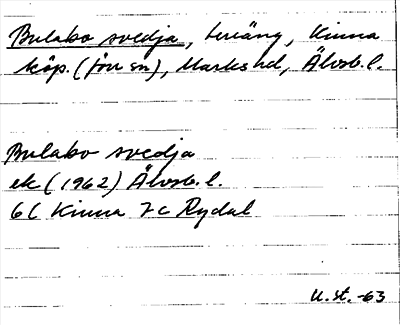 Bulabo svedja, teräng, Kinna
köp. (förr sn), Marks hd, Älvsb. l.
Bulabo svedja
ek (1962) Älvsb. l.
6C Kinna 7c Rydal
U. st. -63